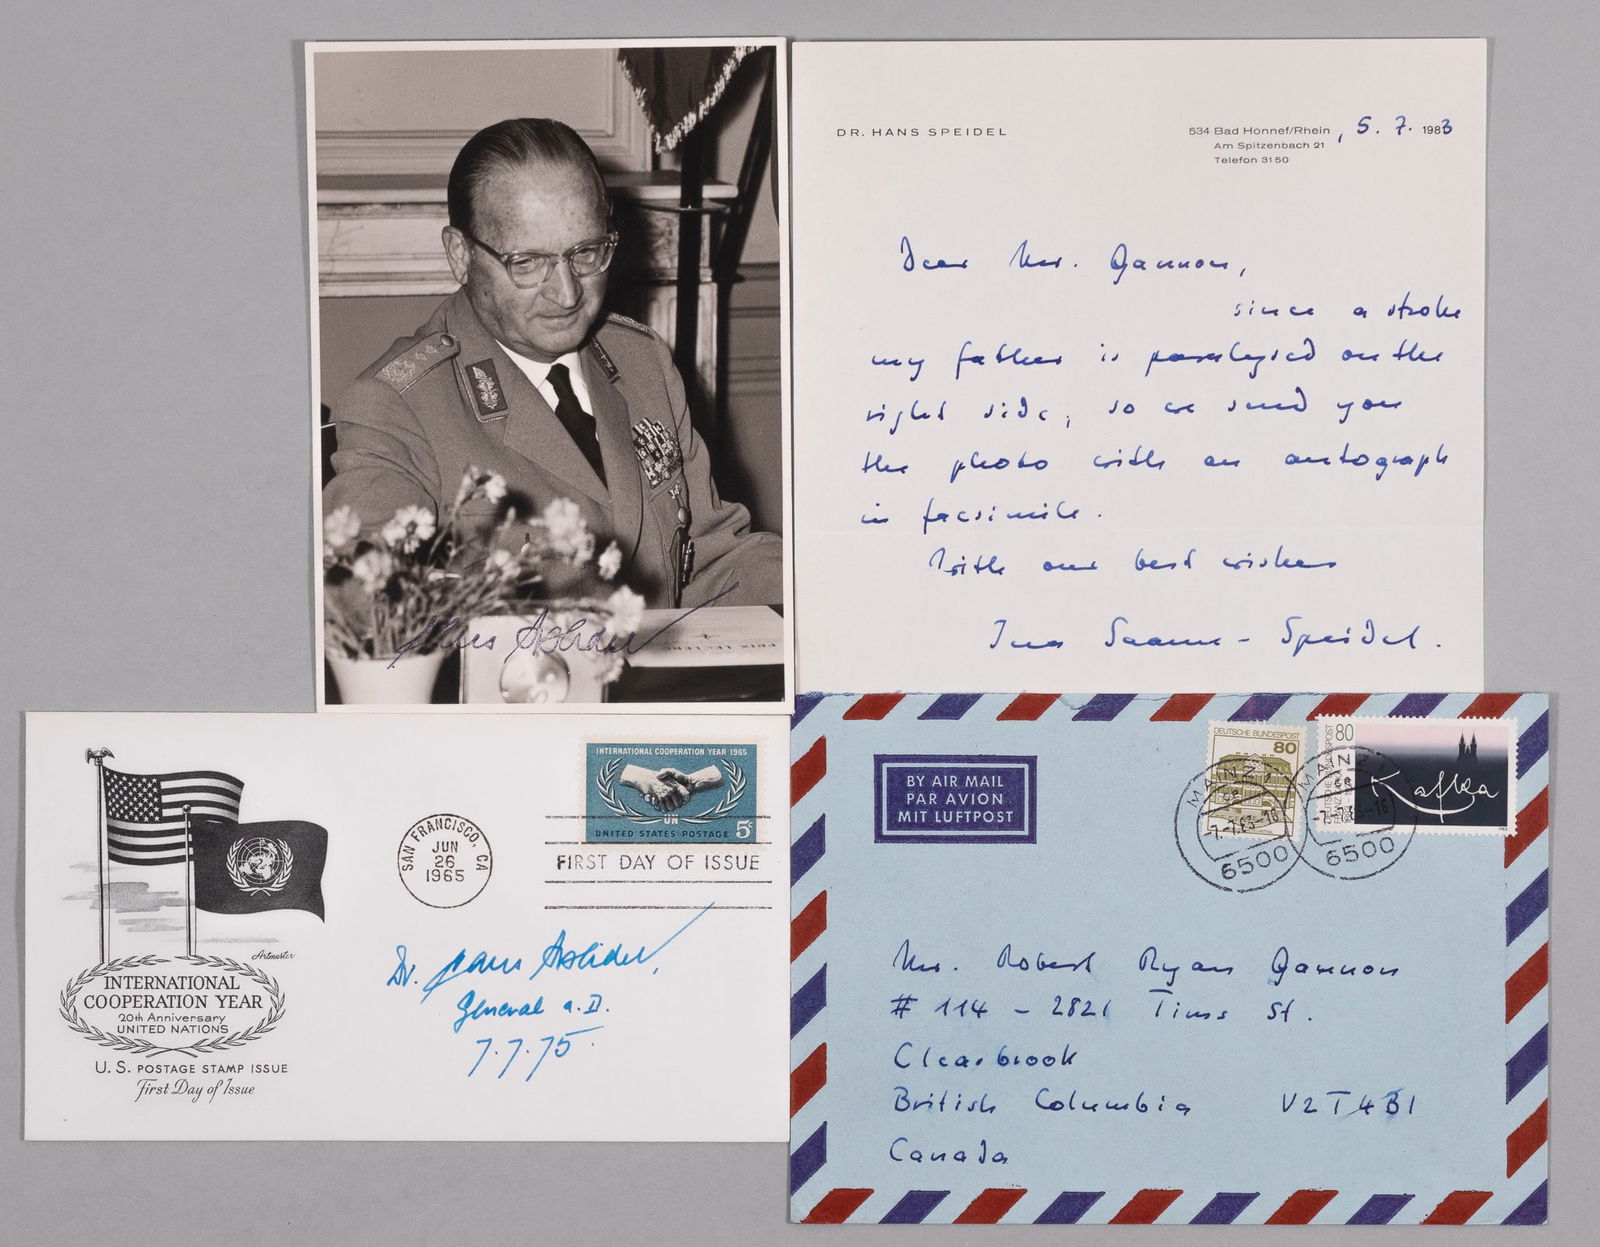 Hans Speidel
DR. HANS SPEIDEL
534 Bad Honnef/Rhein, 5. 7. 1983
Am Spitzenbach 21
Telefon 3150
Dear Mr. Gannon,
since a stroke
my father is paralysed on the
right side, so we send you
the photo with an autograph
in facsimile.
With our best wishes
Ina Saame-Speidel.
INTERNATIONAL COOPERATION YEAR 1965
UN
UNITED STATES POSTAGE 5c
SAN FRANCISCO, CA
JUN
26
1965
FIRST DAY OF ISSUE
Artmaster
INTERNATIONAL
COOPERATION YEAR
20th Anniversary
UNITED NATIONS
U. S. POSTAGE STAMP ISSUE
First Day of Issue
Dr. Hans Speidel,
General a. D.
7.7.75.
BY AIR MAIL
PAR AVION
MIT LUFTPOST
DEUTSCHE BUNDESPOST
80
DEUTSCHE BUNDESPOST
80
Kafka
MAINZ 1
-7.-7.83-16
6500
MAINZ 1
-7.-7.83-16
6500
Mr. Robert Ryan Gannon
# 114 - 2821 Tims St.
Clearbrook
British Columbia V2T4B1
Canada